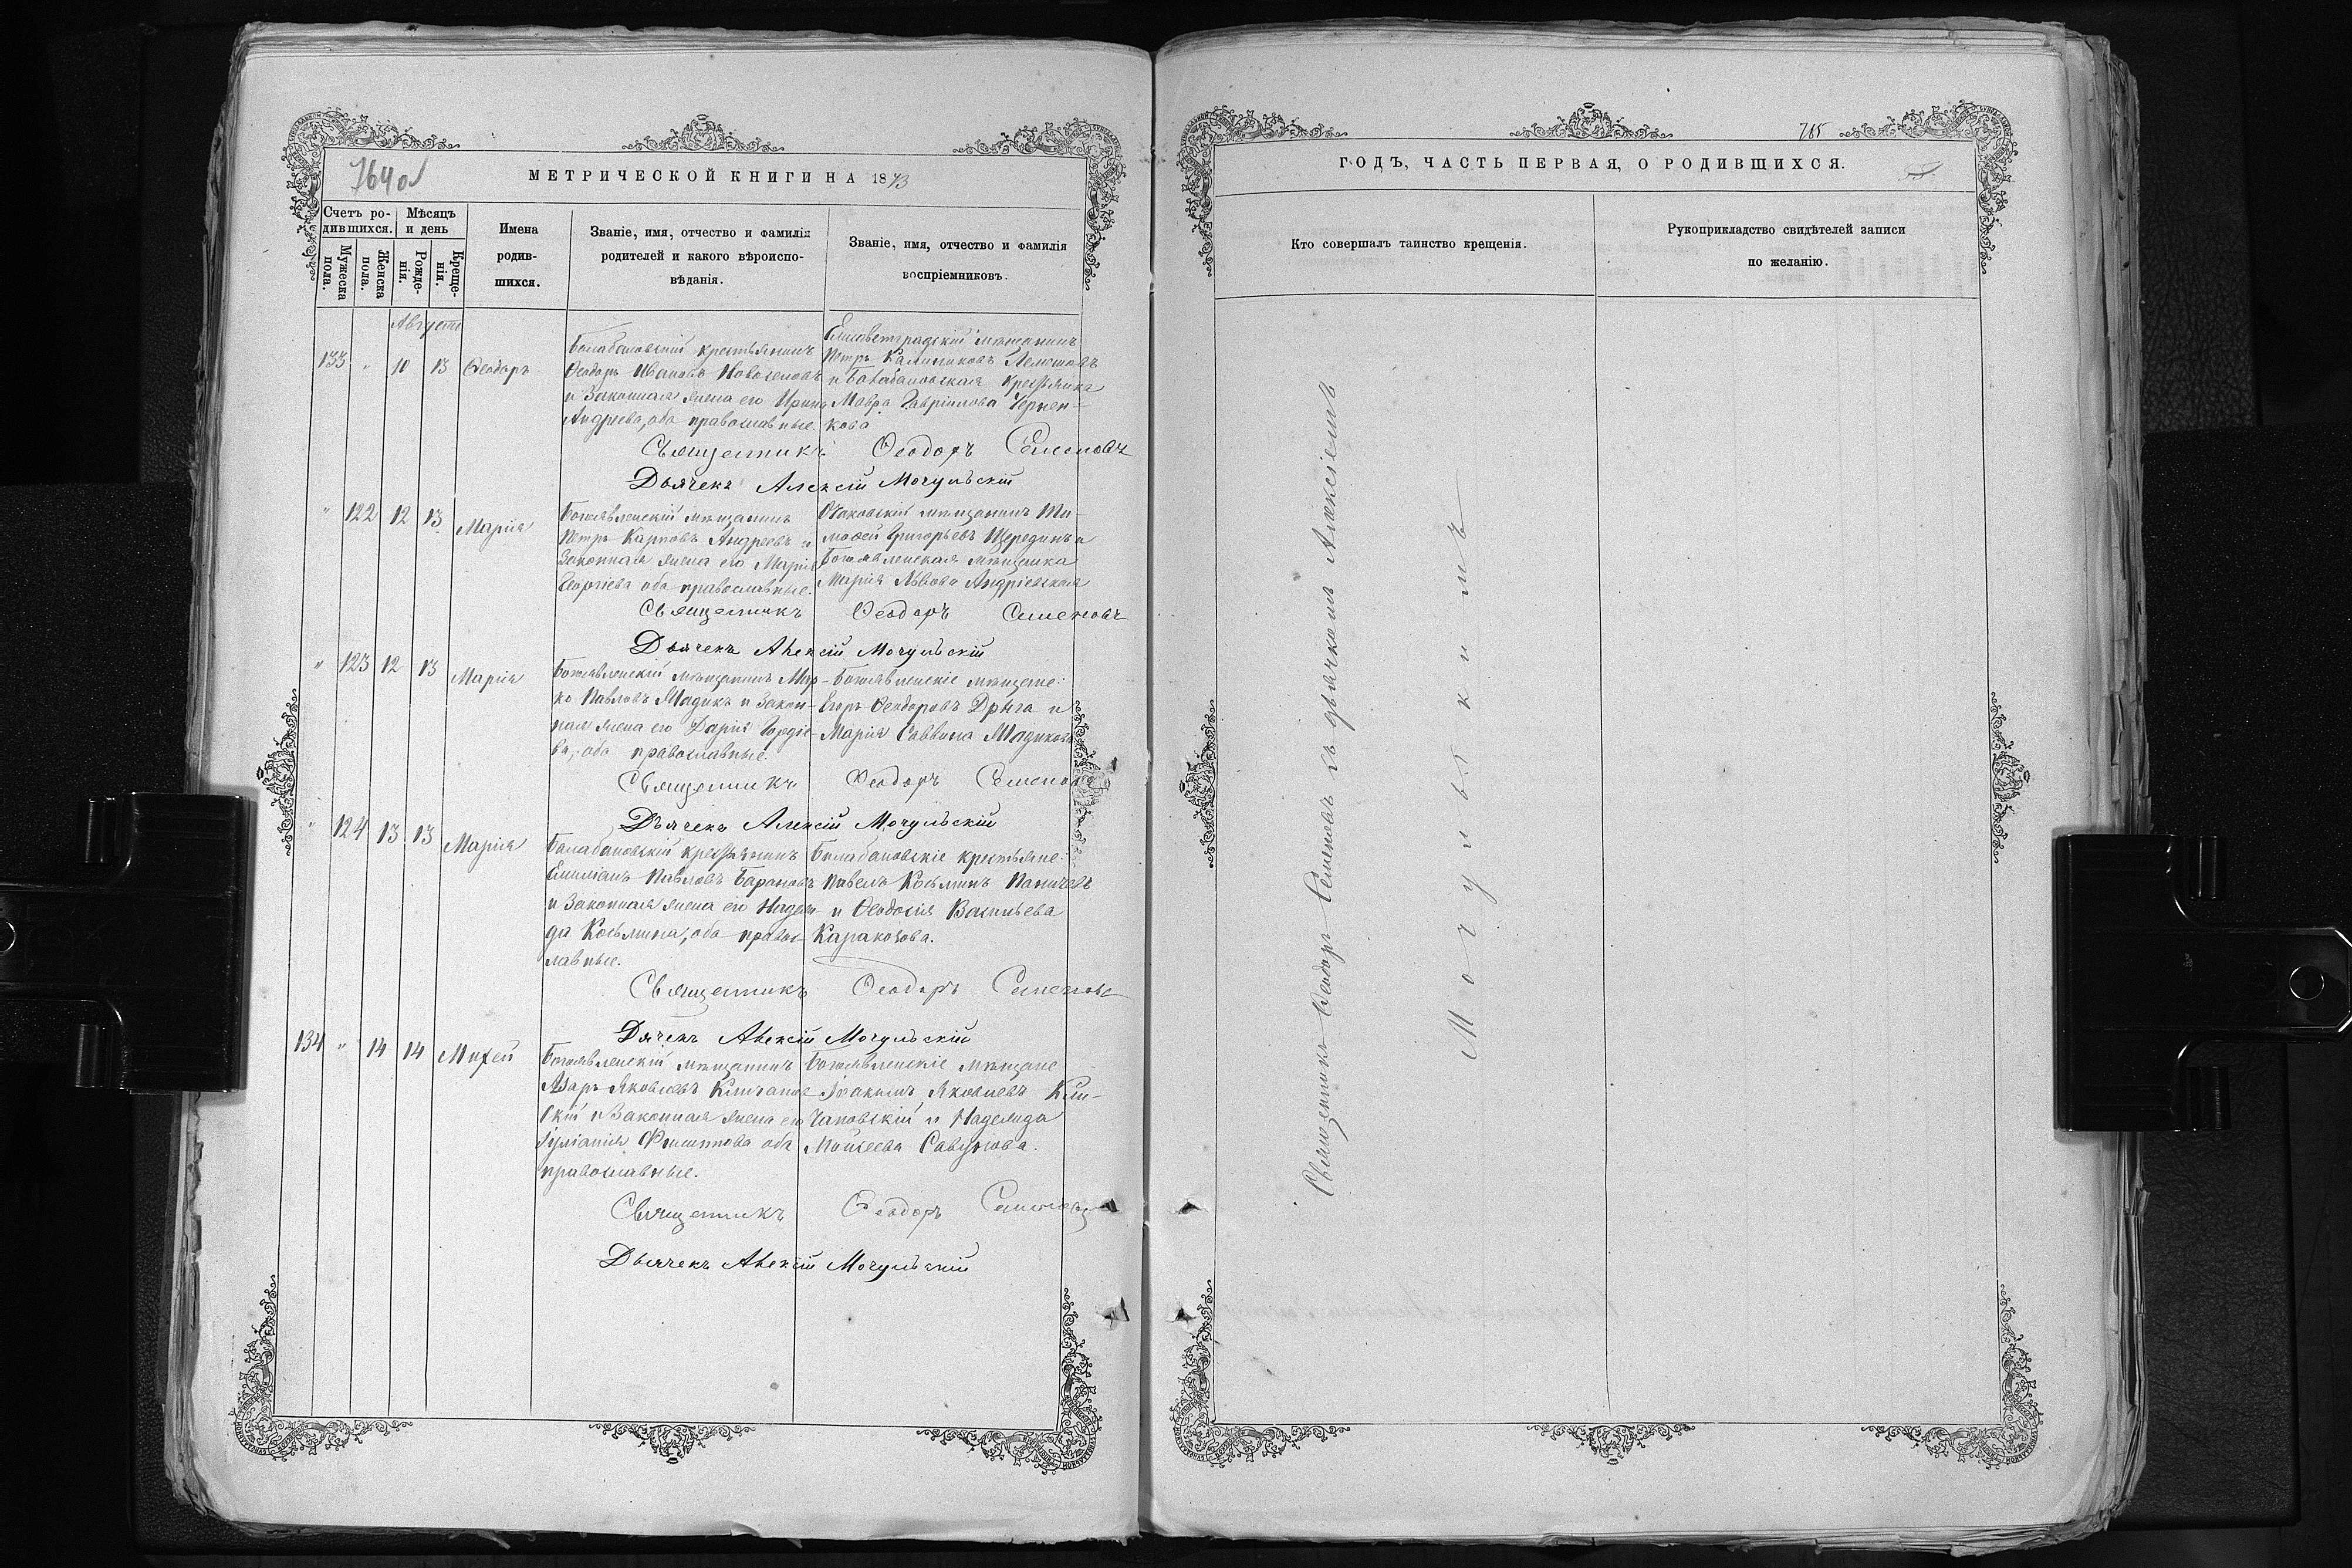 764об
МЕТРИЧЕСКОЙ КНИГИ НА 1873
Счетъ ро-
дившихся.
Мѣсяцъ
и день
Мужеска
пола.
Женска
пола.
Рожде-
нія.
Креще-
нія.
Имена
родив-
шихся.
Званіе, имя, отчество и фамилія
родителей и какого вѣроиспо-
вѣданія.
Званіе, имя, отчество и фамилія
воспріемниковъ.
Августъ
133 " 10 13 Ѳеодоръ
Балабановскій крестьянинъ
Ѳеодоръ Ивановъ Новоселовъ
и законная жена его Ирина
Андреева, оба православные.
Елисаветградскій мѣщанинъ
Петръ Калиниковъ Лемешовъ
и Балабановская крестьянка
Мавра Гавріилова Чернен-
кова
Священникъ Ѳеодоръ Семеновъ
Дьячекъ Алексій Мочульскій
" 122 12 13 Марія
Богоявленскій мѣщанинъ
Петръ Карповъ Андреевъ и
законная жена его Марія
Георгіева оба православные.
Очаковскій мѣщанинъ Ти-
моѳей Григорьевъ Щерединъ и
Богоявленская мѣщанка
Марія Львова Андріевская
Священникъ Ѳеодоръ Семеновъ
Дьячекъ Алексій Мочульскій
" 123 12 13 Марія
Богоявленскій мѣщанинъ Мар-
ко Павловъ Мадикъ и закон-
ная жена его Дарія Гордіе-
ва, оба православные.
Богоявленскіе мѣщане:
Егоръ Ѳеодоровъ Дрыга и
Марія Саввина Мадикова
Священникъ Ѳеодоръ Семеновъ
Дьячекъ Алексій Мочульскій
" 124 13 13 Марія
Балабановскій крестьянинъ
Емиліанъ Павловъ Барановъ
и законная жена его Надеж-
да Косьмина, оба правос-
лавные.
Балабановскіе крестьяне:
Павелъ Косьминъ Паничевъ
и Ѳеодосія Васильева
Каракозова.
Священникъ Ѳеодоръ Семеновъ
Дячекъ Алексій Мочульскій
134 " 14 14 Михей
Богоявленскій мѣщанинъ
Азаръ Яковлевъ Климчанов-
скій и законная жена его
Іуліанія Филиппова оба
православные.
Богоявленскіе мѣщане
Іоакимъ Яковлевъ Клим-
чановскій и Надежда
Моисеева Савунова.
Священникъ Ѳеодоръ Семеновъ
Дьячекъ Алексій Мочульскій
765
ГОДЪ, ЧАСТЬ ПЕРВАЯ, О РОДИВШИХСЯ.
Кто совершалъ таинство крещенія.
Рукоприкладство свидѣтелей записи
по желанію.
Священникъ Ѳеодоръ Семеновъ съ дьячкомъ Алексіемъ
Мочульскимъ